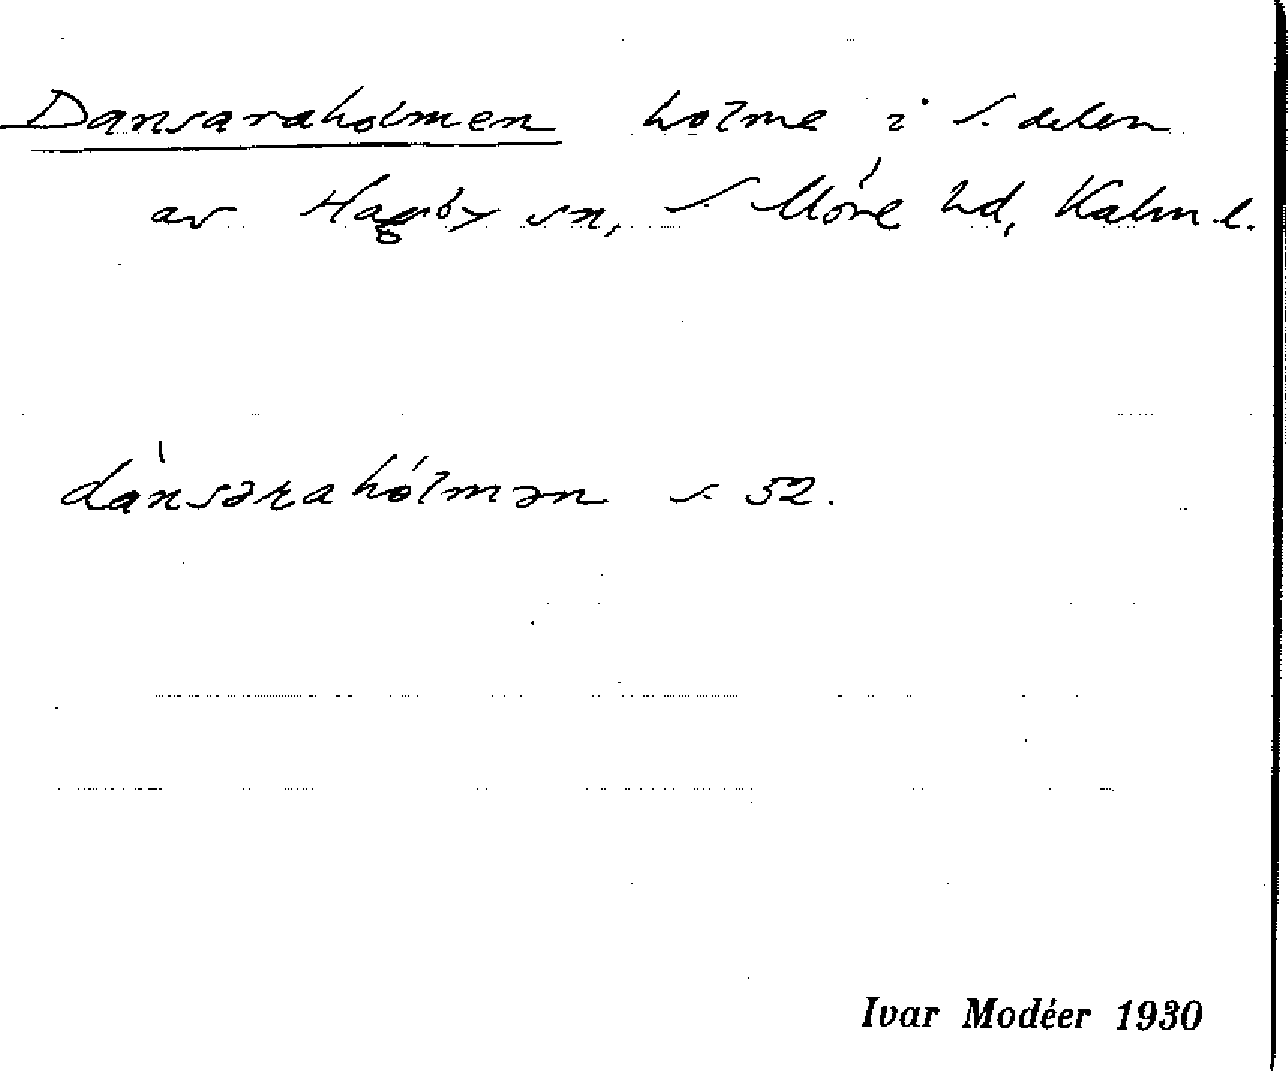 Dansaraholmen holme i S. delen
av Hagby sn, S Möre hd, Kalm l.
dansəraholmən s 52.
Ivar Modéer 1930